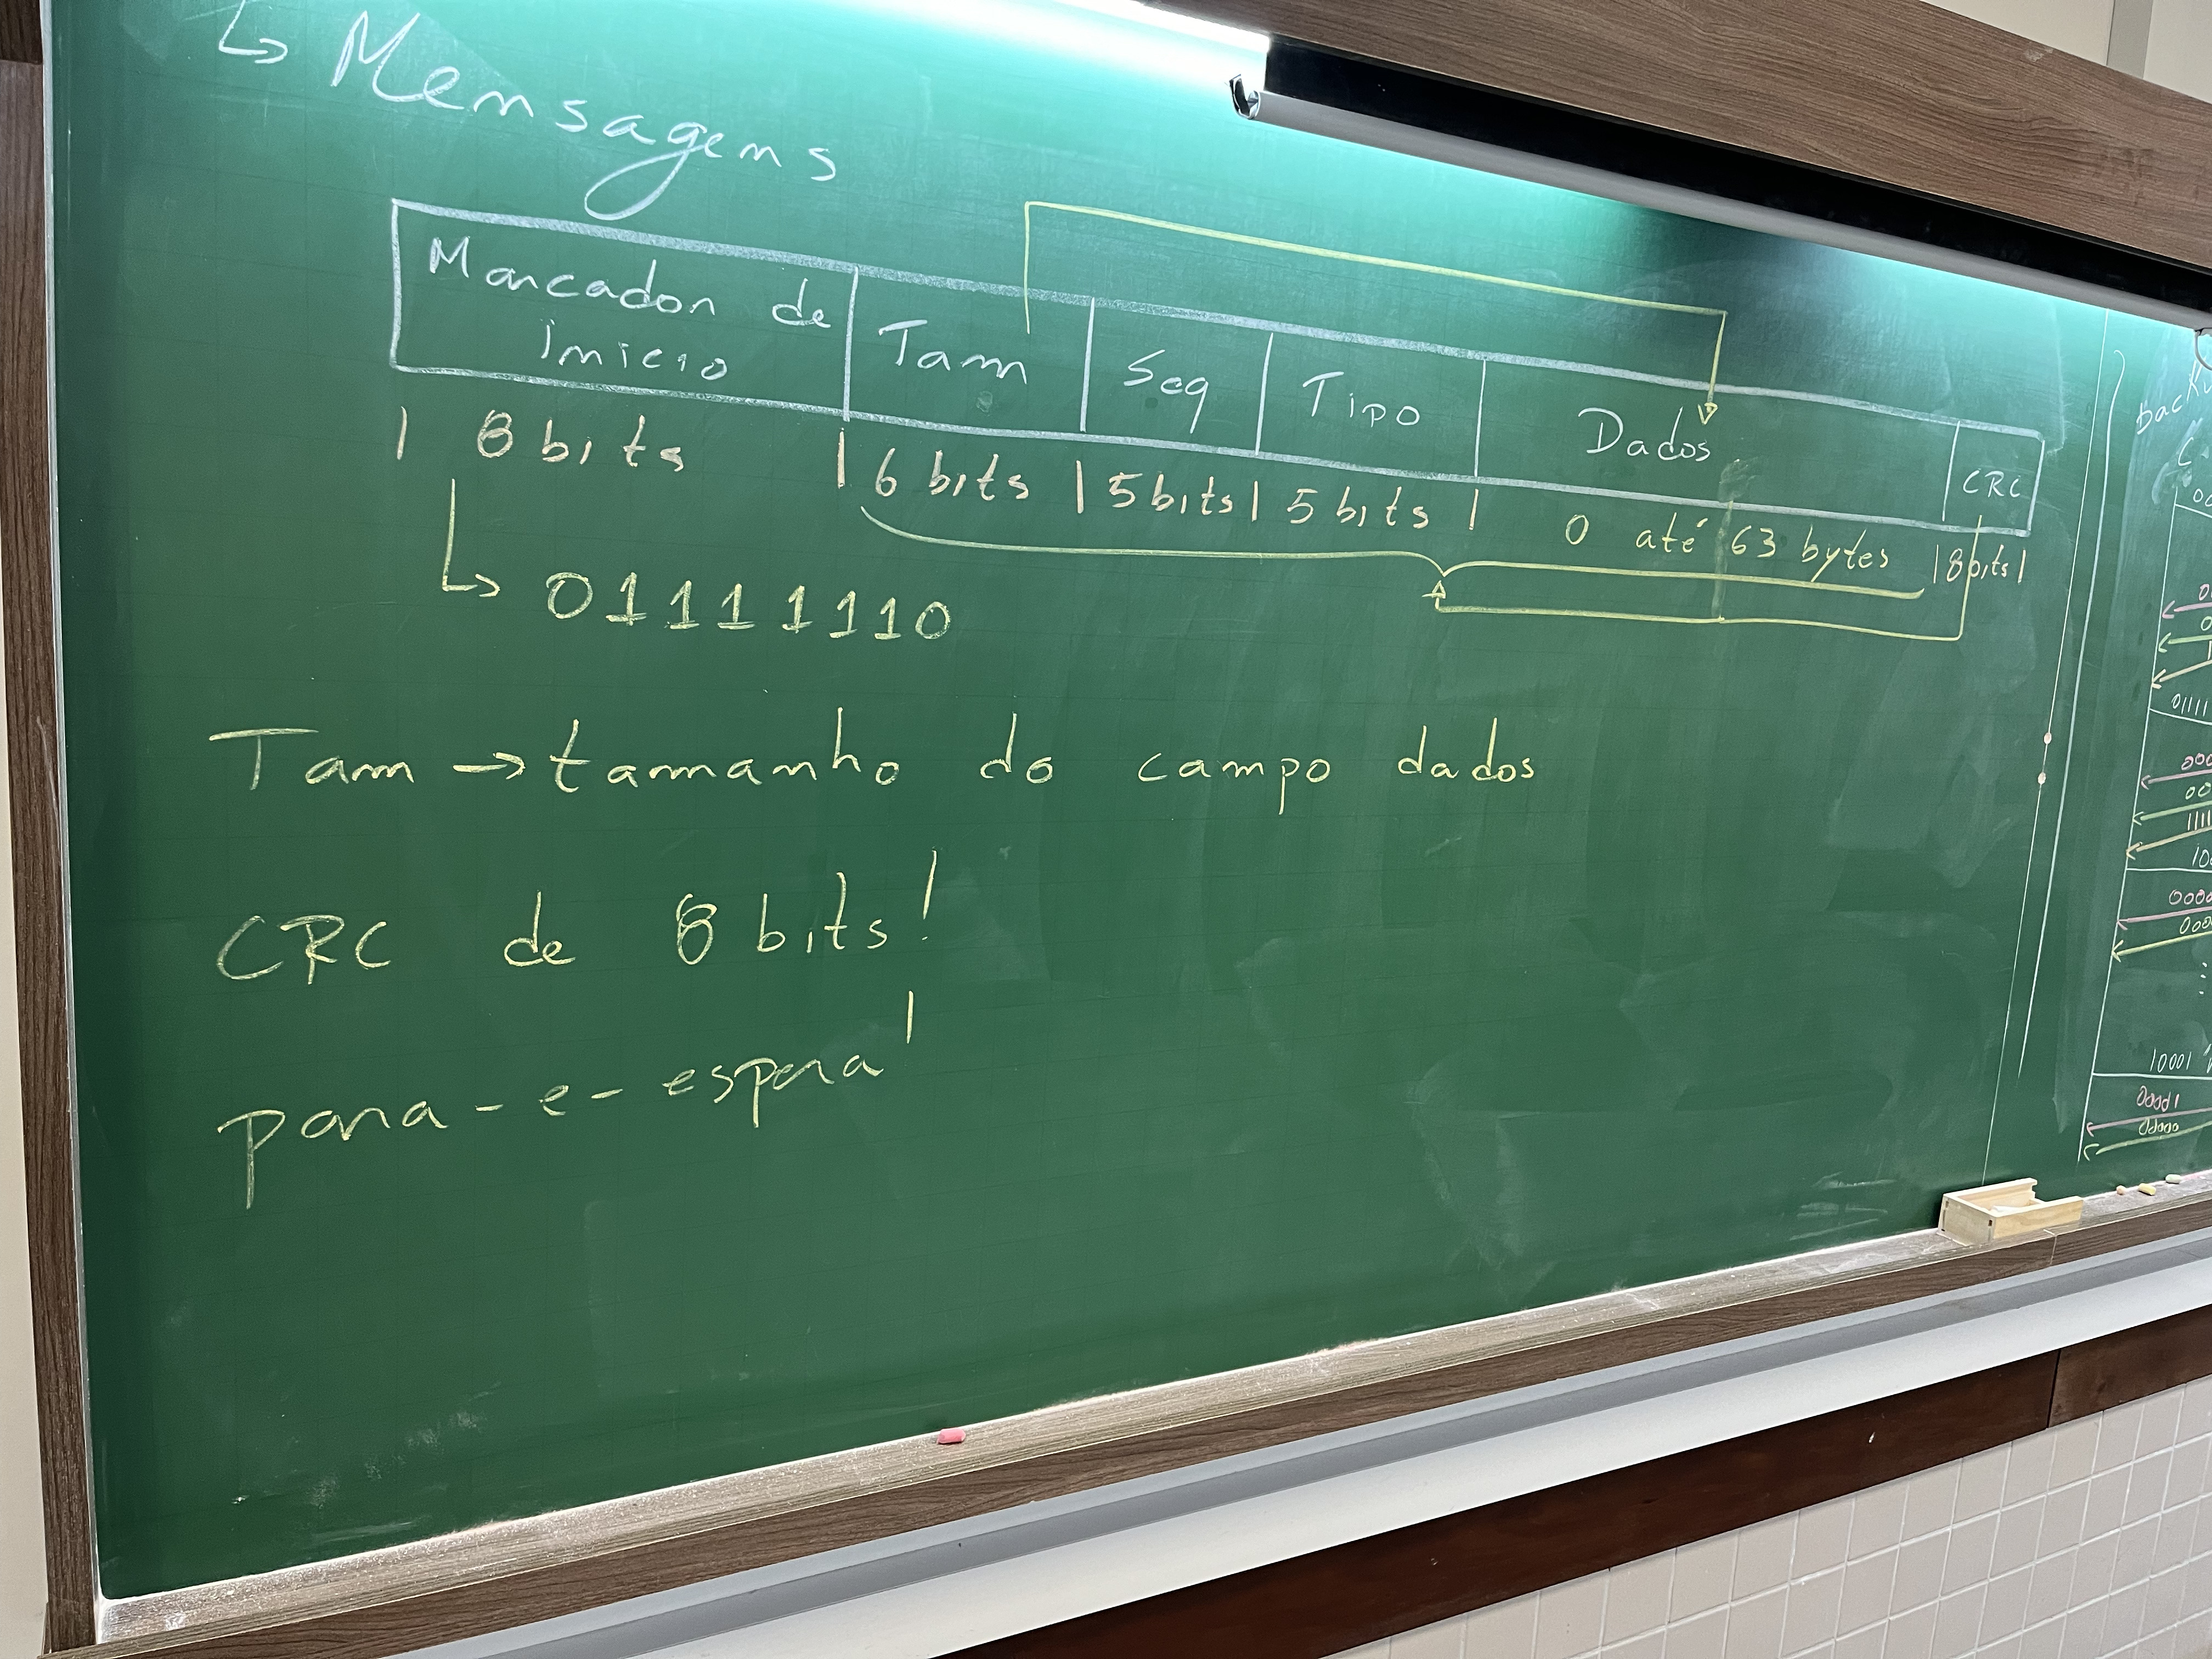 ↳ Mensagens
Marcador de início | Tam | Seq | Tipo | Dados | CRC
| 8 bits | 6 bits | 5 bits | 5 bits | 0 até 63 bytes | 8 bits |
↳ 01111110
Tam → tamanho do campo dados
CRC de 8 bits!
para-e-espera!
10001
00001
00000